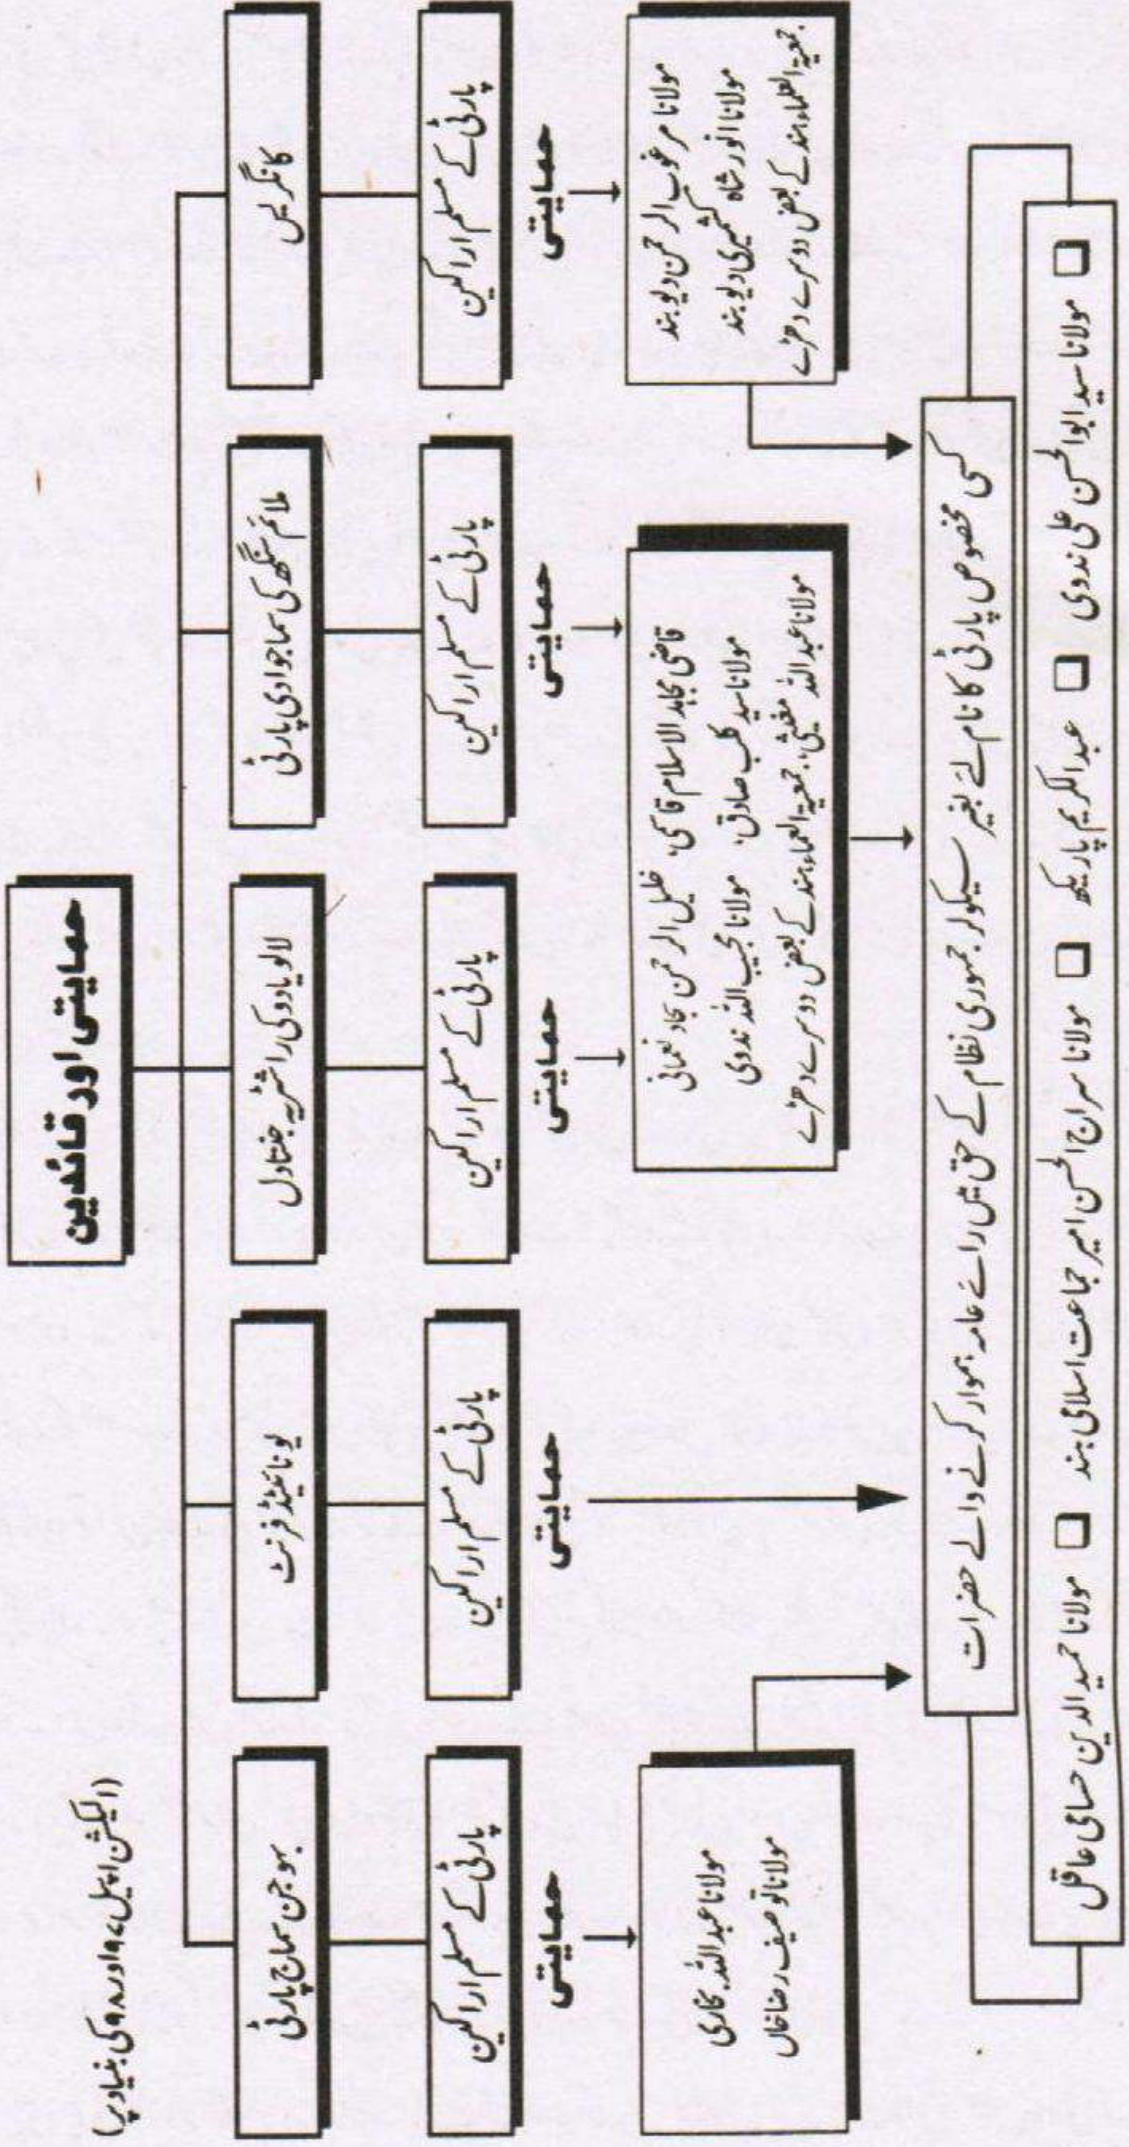 حمایتی اور قائدین
(الیکشن اپیل ۹۶ اور ۹۸ کی بنیاد پر)
کانگریس
ملائم سنگھ کی سماجوادی پارٹی
لالو یادو کی راشٹریہ جنتادل
یونائیٹڈ فرنٹ
بہوجن سماج پارٹی
پارٹی کے مسلم اراکین
پارٹی کے مسلم اراکین
پارٹی کے مسلم اراکین
پارٹی کے مسلم اراکین
پارٹی کے مسلم اراکین
حمایتی
حمایتی
حمایتی
حمایتی
حمایتی
مولانا مرغوب الرحمن دیوبند
مولانا انور شاہ کشمیری دیوبند
جمعیۃ العلماء ہند کے بعض دوسرے دھڑے
قاضی مجاہد الاسلام قاسمی، خلیل الرحمن سجاد نعمانی
مولانا سید کلب صادق، مولانا مجیب اللہ ندوی
مولانا عبد اللہ مغیثی، جمعیۃ العلماء ہند کے بعض دوسرے دھڑے
مولانا عبد اللہ بخاری
مولانا توصیف رضا خاں
کسی مخصوص پارٹی کا نام لئے بغیر سیکولر جمہوری نظام کے حق میں رائے عامہ ہموار کرنے والے حضرات
❑ مولانا سید ابوالحسن علی ندوی ❑ عبد الکریم پاریکھ ❑ مولانا سراج الحسن امیر جماعت اسلامی ہند ❑ مولانا حمید الدین حسامی عاقل